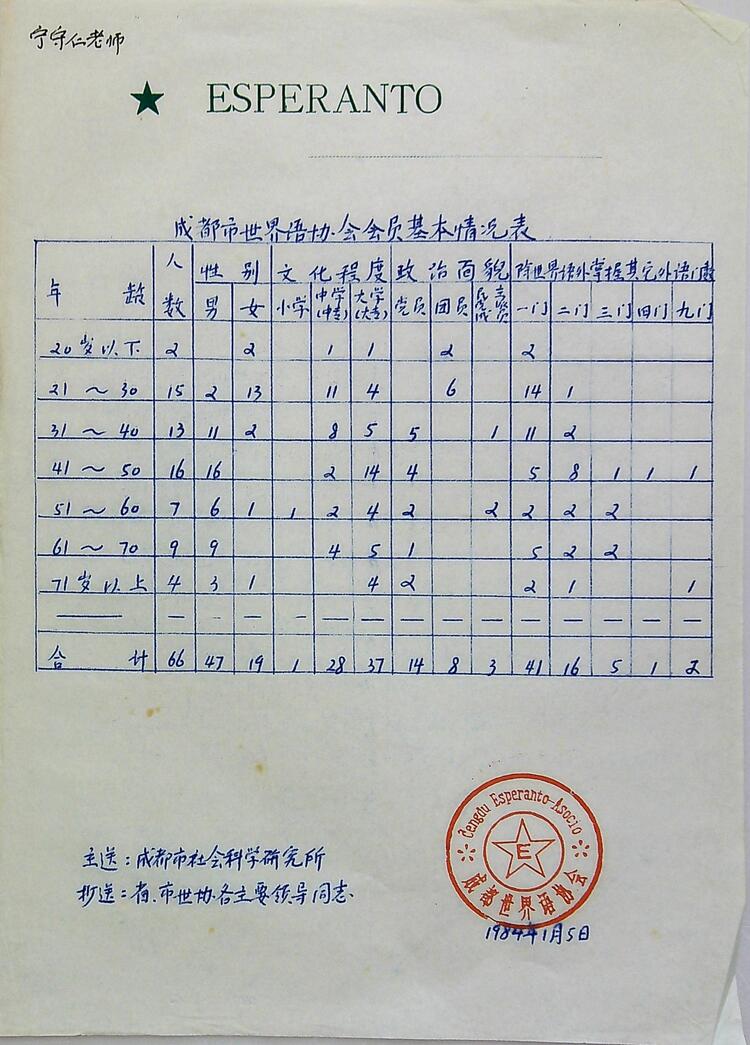 宁守仁老师
★ ESPERANTO
成都市世界语协会会员基本情况表
年龄 人数 性别 文化程度 政治面貌 除世界语外掌握其它外语门数
男 女 小学 中学(中专) 大学(大专) 党员 团员 民主党派成员 一门 二门 三门 四门 九门
20岁以下 2 2 1 1 2 2
21～30 15 2 13 11 4 6 14 1
31～40 13 11 2 8 5 5 1 11 2
41～50 16 16 2 14 4 5 8 1 1 1
51～60 7 6 1 1 2 4 2 2 2 2 2
61～70 9 9 4 5 1 5 2 2
71岁以上 4 3 1 4 2 2 1 1
—— — — — — — — — — — — — — — —
合计 66 47 19 1 28 37 14 8 3 41 16 5 1 2
主送：成都市社会科学研究所
抄送：省、市世协各主要领导同志
Ĉengdu Esperanto-Asocio
E
成都世界语协会
1984年1月5日